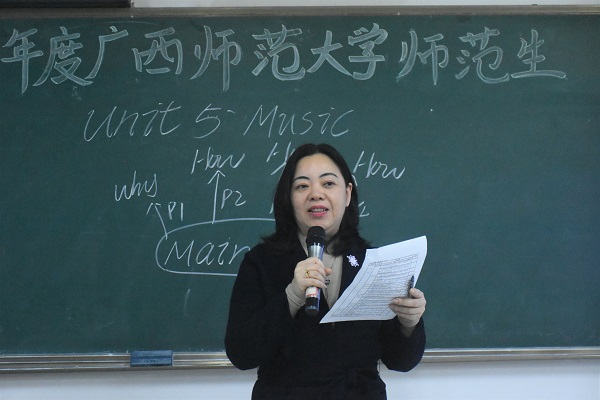 年度广西师范大学师范生
Unit 5 Music
How How
Why
P1 P2
Main